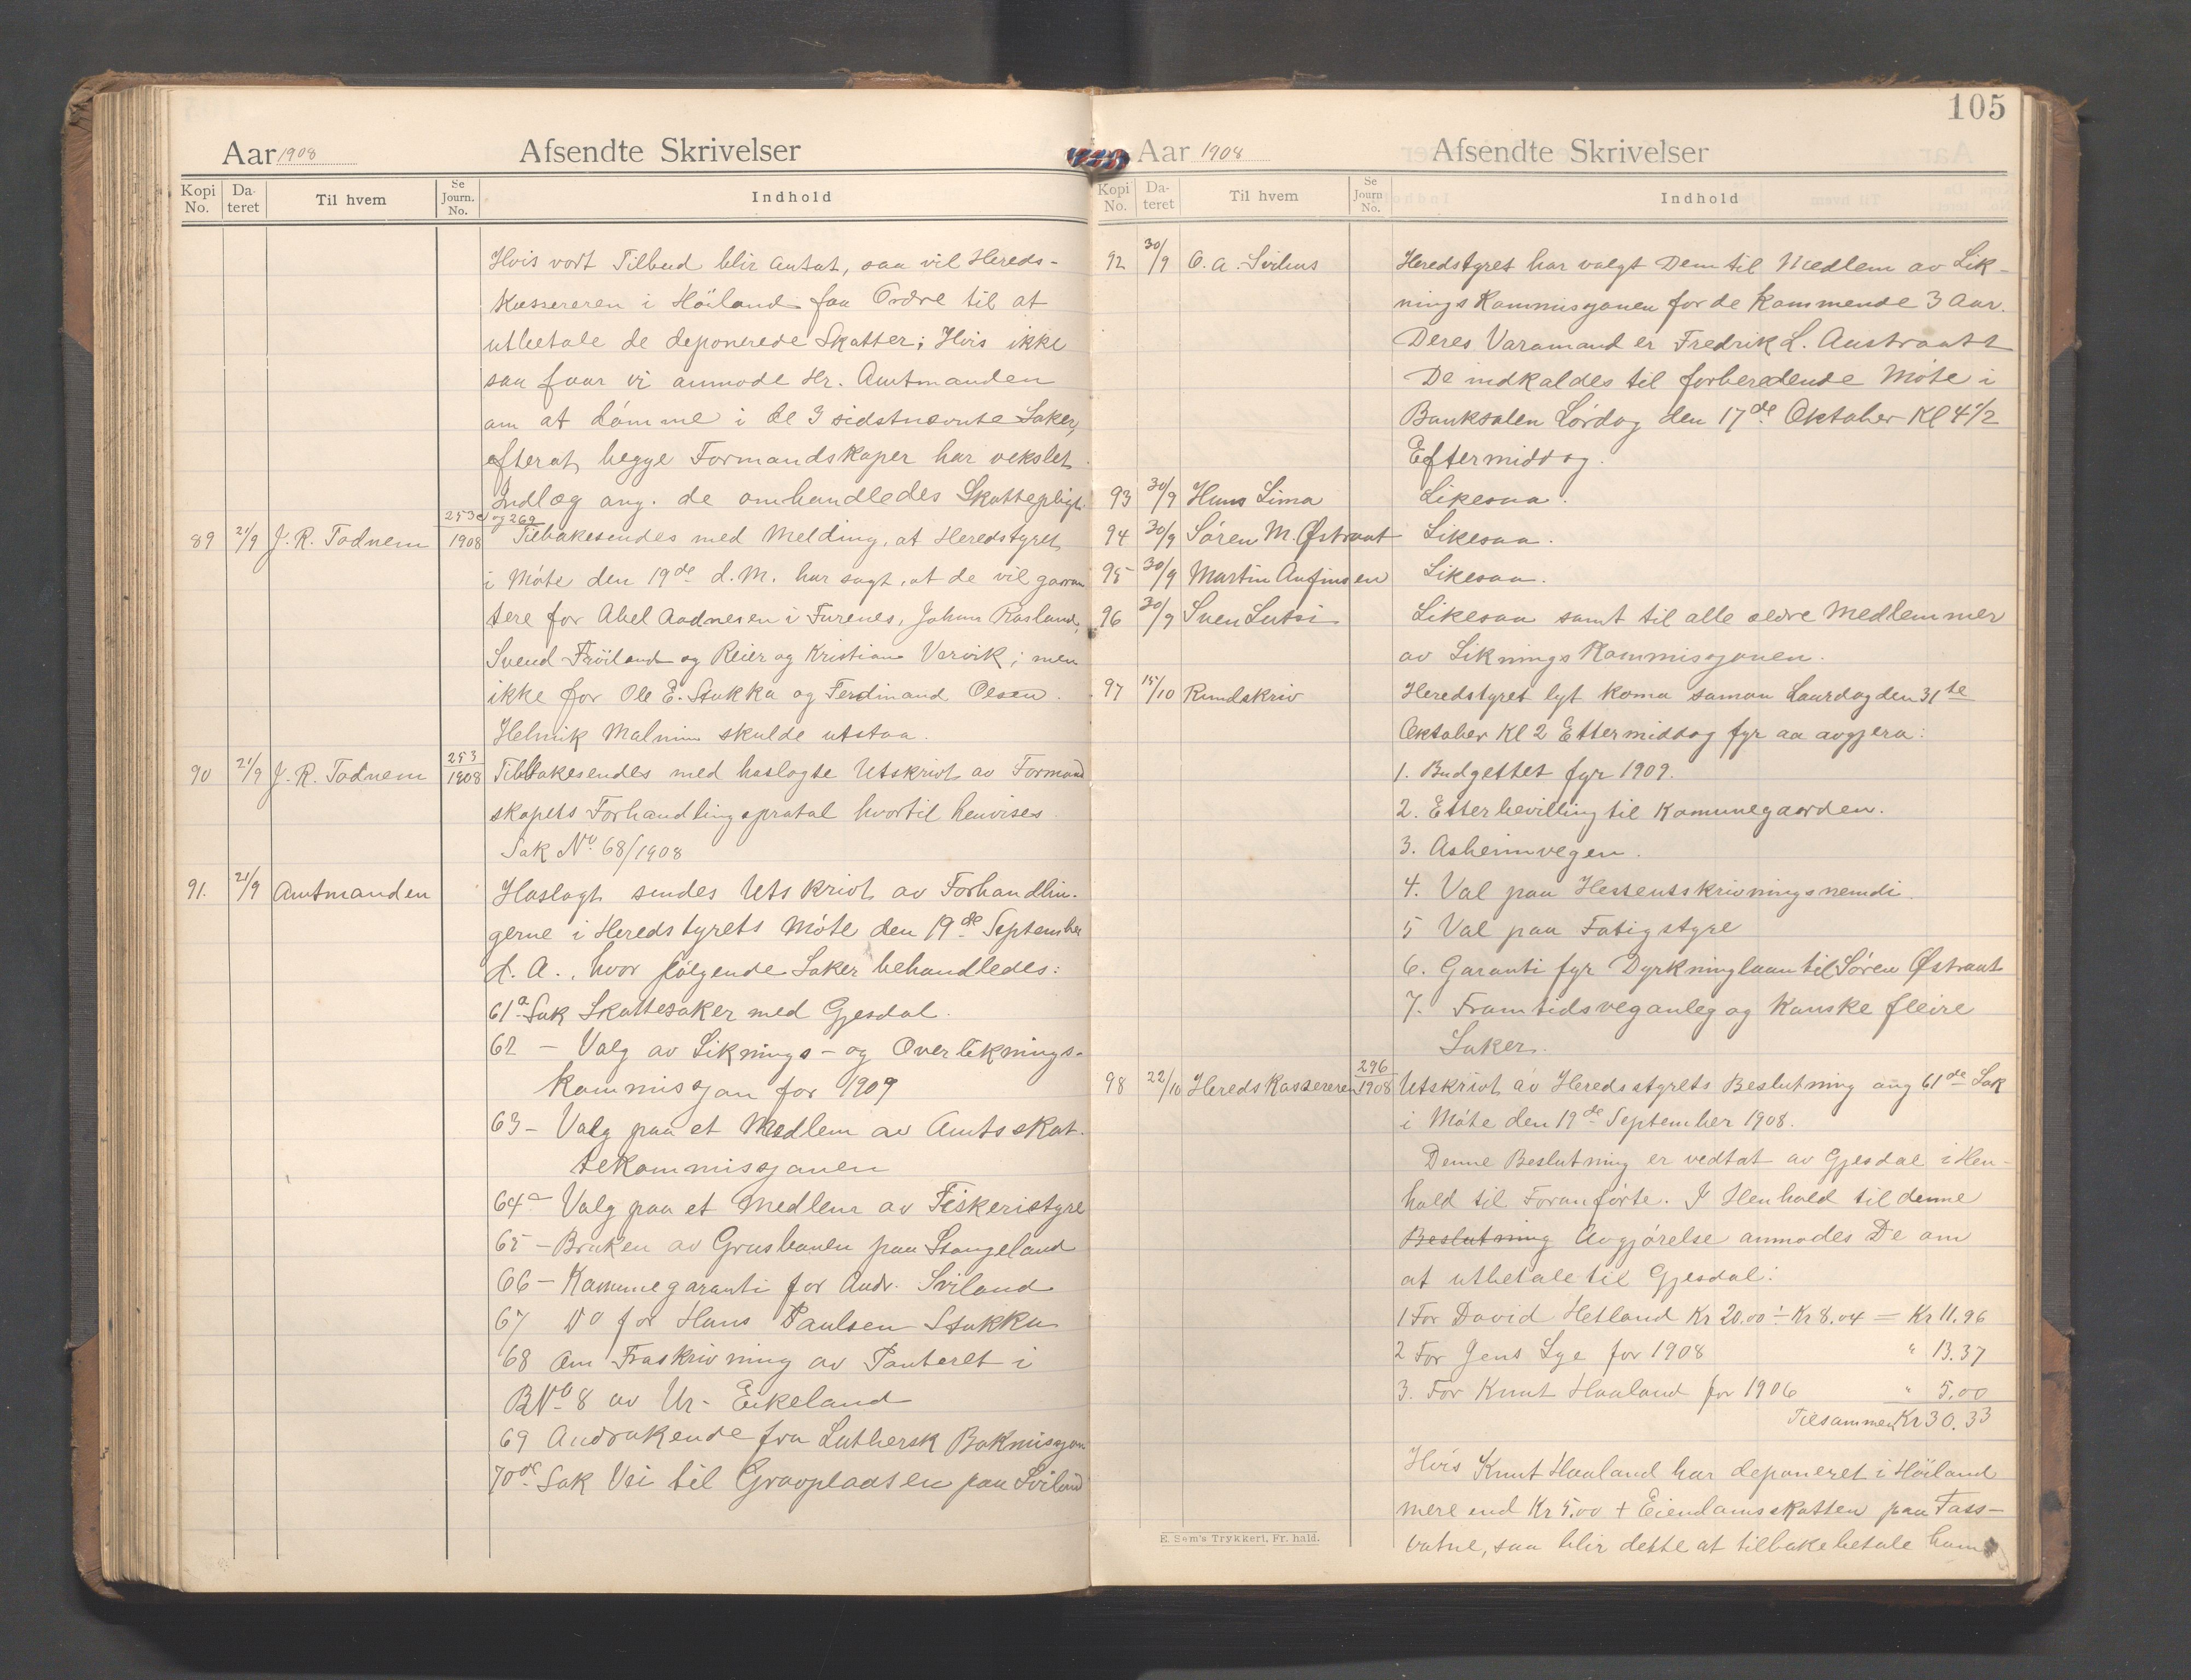 Aar 1908 Afsendte Skrivelser
Kopi No. Da-teret Til hvem Se Journ. No. Indhold
Hvis vort Tilbud blir antat, saa vil Hereds-
kassereren i Höiland faa Ordre til at
utbetale de deponerede Skatter; Hvis ikke
saa faar vi anmode Hr. Amtmanden
om at dömme i de 3 sidstnævnte Saker,
efterat begge Formandskaper har vekslet
Indlæg ang. de omhandledes Skattepligt.
89 21/9 J. R. Todnem 253 og 269 1908 Tilbakesendes med Melding, at Heredstyret
i Möte den 19de d. M. har sagt, at de vil garan
tere for Abel Aadnesen i Furenes, Johan Rasland,
Svend Fröiland og Reier og Kristian Varvik; men
ikke for Ole E. Stokka og Ferdinand Olsen.
Helmik Malmin skulde utstaa.
90 21/9 J. R. Todnem 253 1908 Tilbakesendes med haslagte Utskrivt av Formand
skapets Forhandlingspratal hvortil henvises
Sak No 68/1908
91. 21/9 Amtmanden Haslagt sendes Utskrivt av Forhandlin-
gerne i Heredstyrets Möte den 19de September
d. A., hvor fölgende Saker behandledes:
61a Sak Skattesaker med Gjesdal.
62 — Valg av Liknings- og Overliknings-
kommissjon for 1909
63 — Valg paa et Medlem av Amtsskat-
tekommissjonen
64 — Valg paa et Medlem av Fiskeristyre
65 — Bruken av Grusbanen paa Stangeland
66 — Kamunegaranti for Andr. Sviland
67 Do for Hans Paulsen Stokka
68 Om Fraskrivning av Panteret i
BNo 8 av Ur-Eikeland
69 Andrakende fra Luthersk Bokmisjon
70de Sak Vei til Gravplassen paa Sviland
105
Aar 1908 Afsendte Skrivelser
Kopi No. Da-teret Til hvem Se Journ. No. Indhold
92 30/9 O. A. Svihus Heredstyret har valgt Dem til Medlem av Lik-
ningsKommissjonen for de kommende 3 Aar.
Deres Varamand er Fredrik L. Austraatt
De indkaldes til forberedende Möte i
Banksalen Lördag den 17de Oktober Kl 4 1/2
Eftermiddag.
93 30/9 Hans Lima Likesaa.
94 30/9 Sören M. Östraat Likesaa.
95 30/9 Martin Anfinsen Likesaa.
96 30/9 Sven Lutsi Likesaa samt til alle ældre Medlemmer
av LikningsKommissjonen.
97 15/10 Rundskriv Heredstyret lyt koma saman Laurdag den 31te
Oktober Kl 2 Ettermiddag fyr aa avgjera:
1. Budgettet fyr 1909.
2. Etterbevilling til Komunegaarden.
3. Asheimvegen.
4. Val paa Hesteutskrivningsnemdi.
5 Val paa Fatigstyre
6. Garanti fyr Dyrkninglaan til Sören Östraat
7. Framtidsveganleg og kanske fleire
Saker.
98 22/10 HeredsKassereren 296 1908 Utskrivt av Heredsstyrets Beslutning ang 61de Sak
i Möte den 19de September 1908.
Denne Beslutning er vedtat av Gjesdal i Hen-
hald til Foranförte. I Henhold til denne
Beslutning Avgjörelse anmodes De om
at utbetale til Gjesdal:
1 For David Hetland Kr 20.00 ÷ Kr 8.04 = Kr 11.96
2 For Jens Lye for 1908 " 13.37
3. For Knut Haaland for 1906 " 5.00
Tilsammen Kr 30.33
Hvis Knut Haaland har deponeret i Höiland
mere end Kr 5.00 + Eiendomsskatten paa Foss-
vatne, saa blir dette at tilbakebetale ham
E. Sem's Trykkeri, Fr. hald.